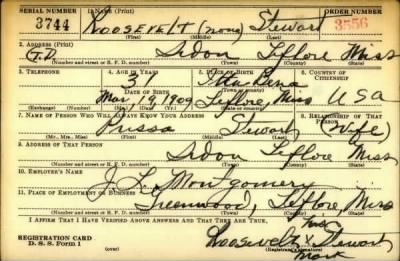 SERIAL NUMBER 1. NAME (Print) ORDER NUMBER
3744 Roosevelt (none) Stewart 3556
(First) (Middle) (Last)
2. ADDRESS (Print)
Sidon Leflore Miss
(Number and street or R. F. D. number) (Town) (County) (State)
3. TELEPHONE 4. AGE IN YEARS 5. PLACE OF BIRTH 6. COUNTRY OF CITIZENSHIP
31 Itta Bena
DATE OF BIRTH
Mar, 19, 1909 Leflore, Miss USA
(Exchange) (Number) (Mo.) (Day) (Yr.) (State or country)
7. NAME OF PERSON WHO WILL ALWAYS KNOW YOUR ADDRESS 8. RELATIONSHIP OF THAT PERSON
Prissa Stewart (Wife)
(Mr., Mrs., Miss) (First) (Middle) (Last)
9. ADDRESS OF THAT PERSON
Sidon Leflore Miss
(Number and street or R. F. D. number) (Town) (County) (State)
10. EMPLOYER'S NAME
J. L. Montgomery
11. PLACE OF EMPLOYMENT OR BUSINESS
Greenwood, Leflore, Miss
(Number and street or R. F. D. number) (Town) (County) (State)
I AFFIRM THAT I HAVE VERIFIED ABOVE ANSWERS AND THAT THEY ARE TRUE.
his
REGISTRATION CARD Roosevelt x Stewart
D. S. S. Form 1 mark